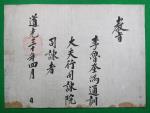 敎旨
李魯奎爲通訓
大夫行司諫院
司諫者
道光 十年四月 日